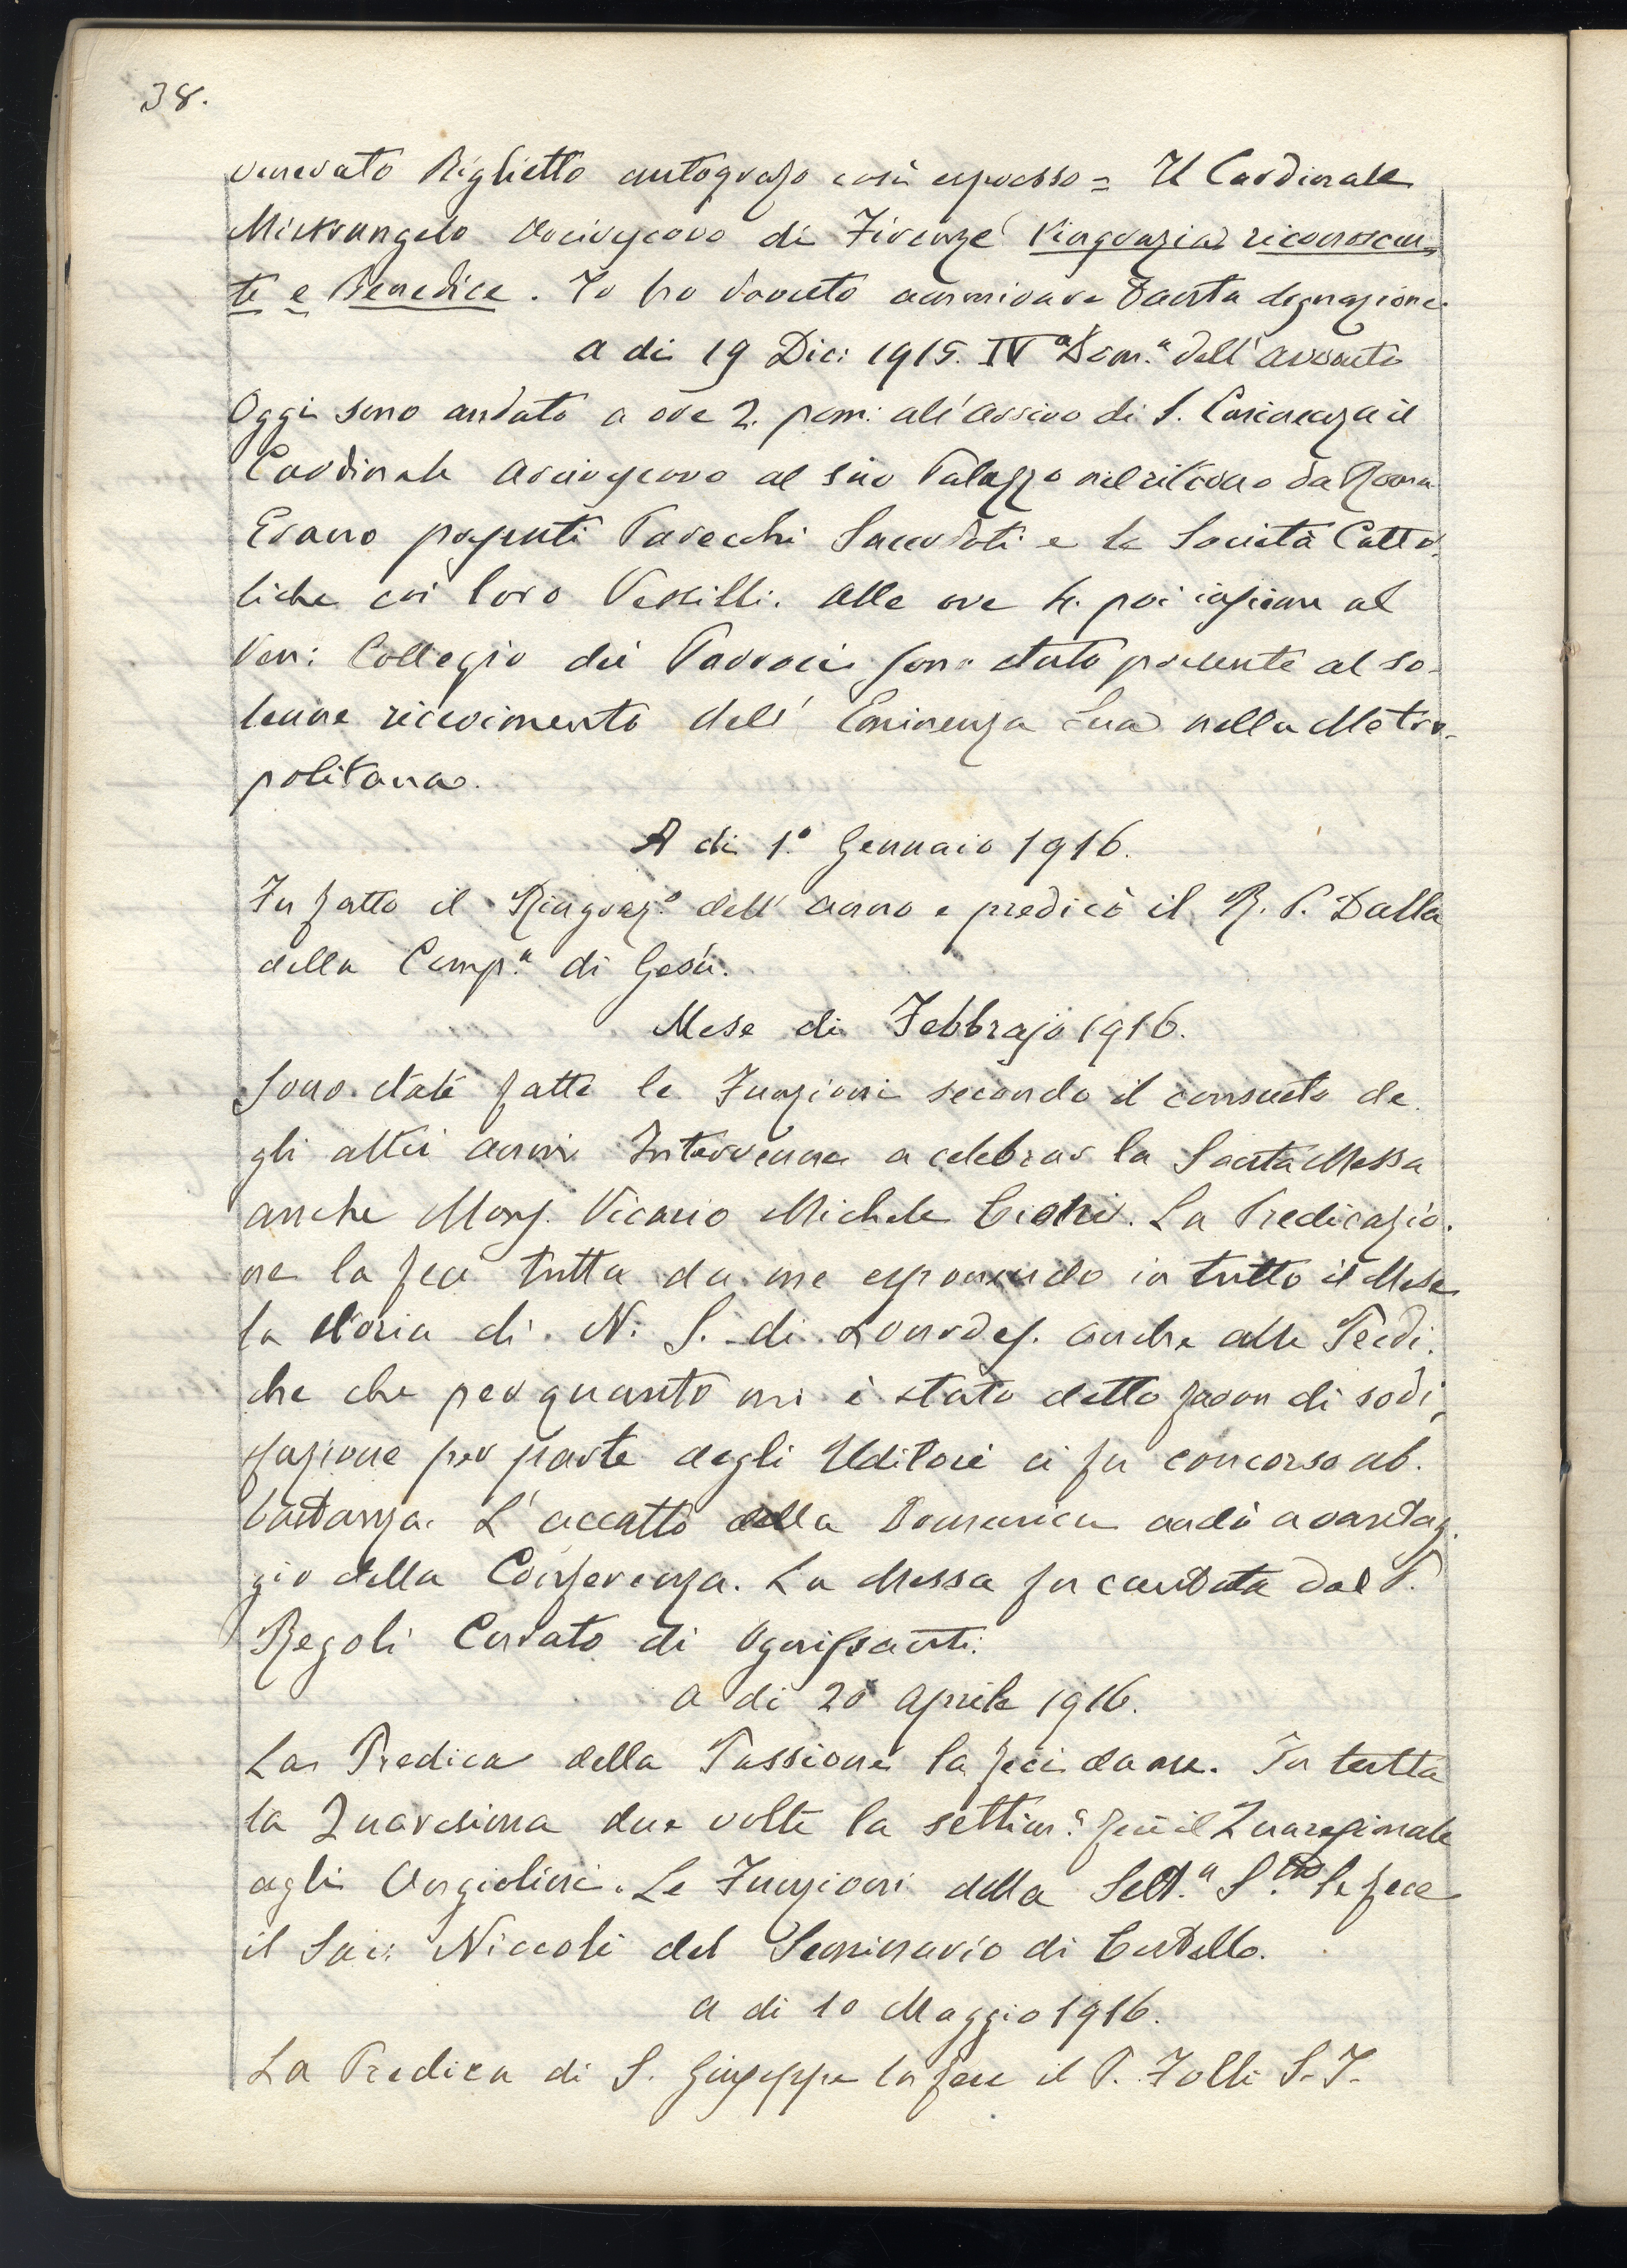 38.
venerato Biglietto autografo così espresso = Il Cardinale
Mistrangelo Arcivescovo di Firenze ringrazia riconoscen-
te e Benedice. Io ho dovuto ammirare tanta degnazione.
A di 19 Dic: 1915. IVª Domª dell'Avvento
Oggi sono andato a ore 2. pom: all'arrivo di S. Eminenza il
Cardinale Arcivescovo al suo Palazzo nel ritorno da Roma
Erano presenti Parecchi Sacerdoti e le Società Catto-
liche coi loro Vessilli. Alle ore 4. poi insieme al
Ven: Collegio dei Parroci sono stato presente al so-
lenne ricevimento dell' Eminenza Sua nella Metro-
politana.
A di 1º Gennaio 1916.
Fu fatto il Ringrazº dell' anno e predicò il R. P. Dalla
della Compª di Gesù.
Mese di Febbrajo 1916.
Sono state fatte le Funzioni secondo il consueto de
gli altri anni Intervenne a celebrar la Santa Messa
anche Mons. Vicario Michele Cioni. La Predicazio-
ne la feci tutta da me esponendo in tutto il Mese
la storia di N. S. di Lourdes. Anche alle Predi-
che che per quanto mi è stato detto furon di sodi-
sfazione per parte degli Uditori ci fu concorso ab-
bastanza. L'accatto della Domenica andò a vantag-
gio della Conferenza. La Messa fu cantata dal P.
Regoli Curato di Ognissanti.
A di 20 Aprile 1916.
La Predica della Passione la feci da me. In tutta
la Quaresima due volte la settimª feci il Quaresimale
agli Angiolini. Le Funzioni della Settª Sta le fece
il Sac: Niccoli del Seminario di Cestello.
A di 10 Maggio 1916.
La Predica di S. Giuseppe la fece il P. Folli S. J.